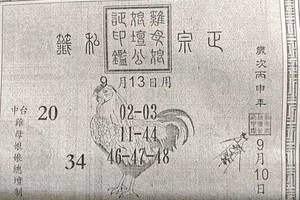 正宗
雞母娘
娘壇公
証印鑑
私籤
9月13日用
歲次丙申年
9月10日
02-03
11-44
46-47-48
20
34
台中雞母娘娘總壇制